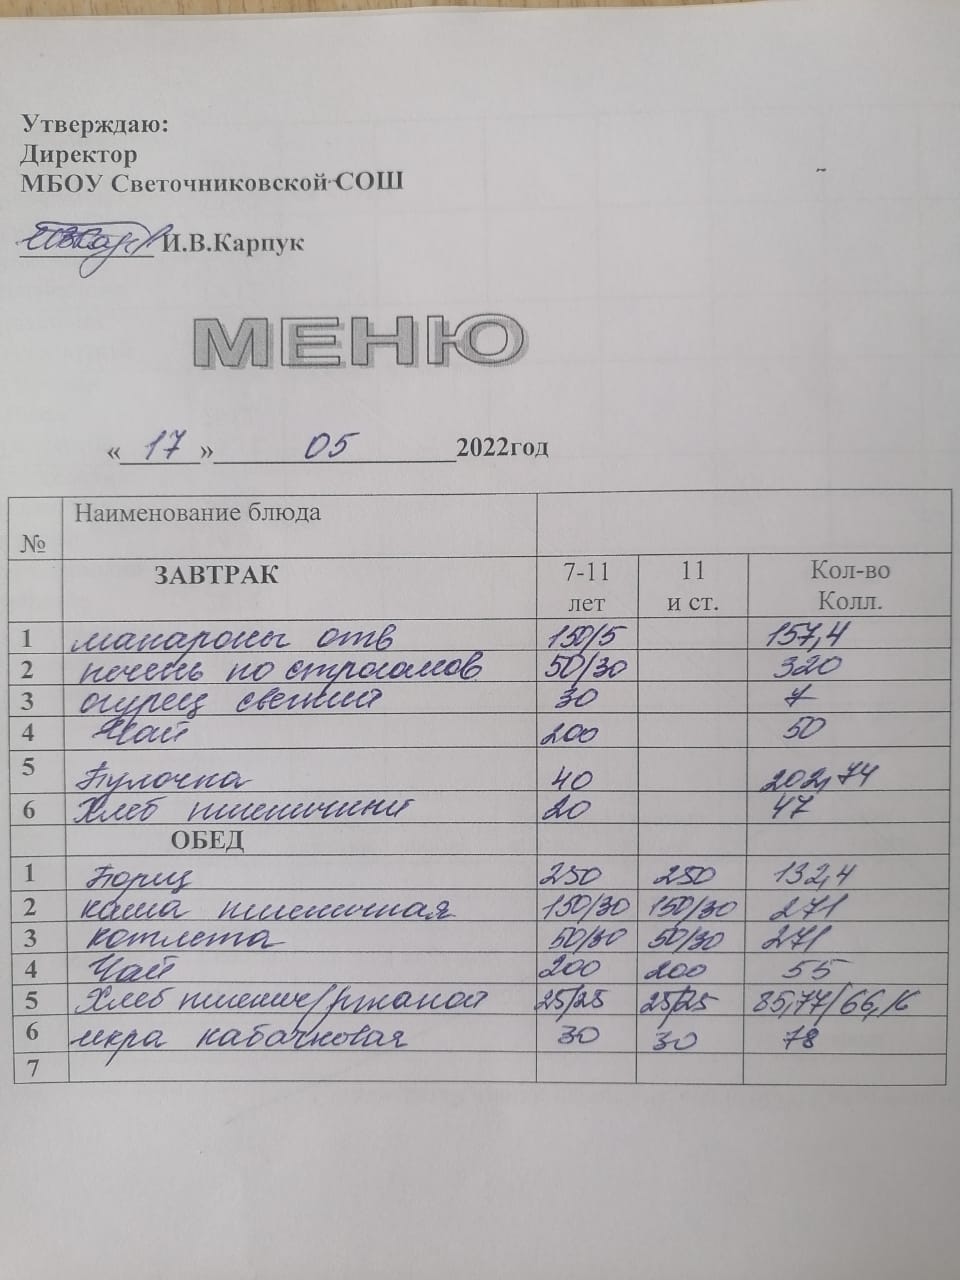 Утверждаю:
Директор
МБОУ Светочниковской СОШ
И.В.Карпук
МЕНЮ
« 17 » 05 2022год
№ Наименование блюда
ЗАВТРАК 7-11 лет 11 и ст. Кол-во Колл.
1 макароны отв 150/5 157,4
2 печень по строгамов 50/30 320
3 огурец свежий 30 7
4 Чай 200 50
5 Булочка 40 202,74
6 Хлеб пшеничный 20 47
ОБЕД
1 Борщ 250 250 132,4
2 каша пшеничная 150/30 150/30 271
3 котлета 50/30 50/30 271
4 Чай 200 200 55
5 Хлеб пшенич/ржаной 25/25 25/25 85,77/66,16
6 икра кабачковая 30 30 78
7